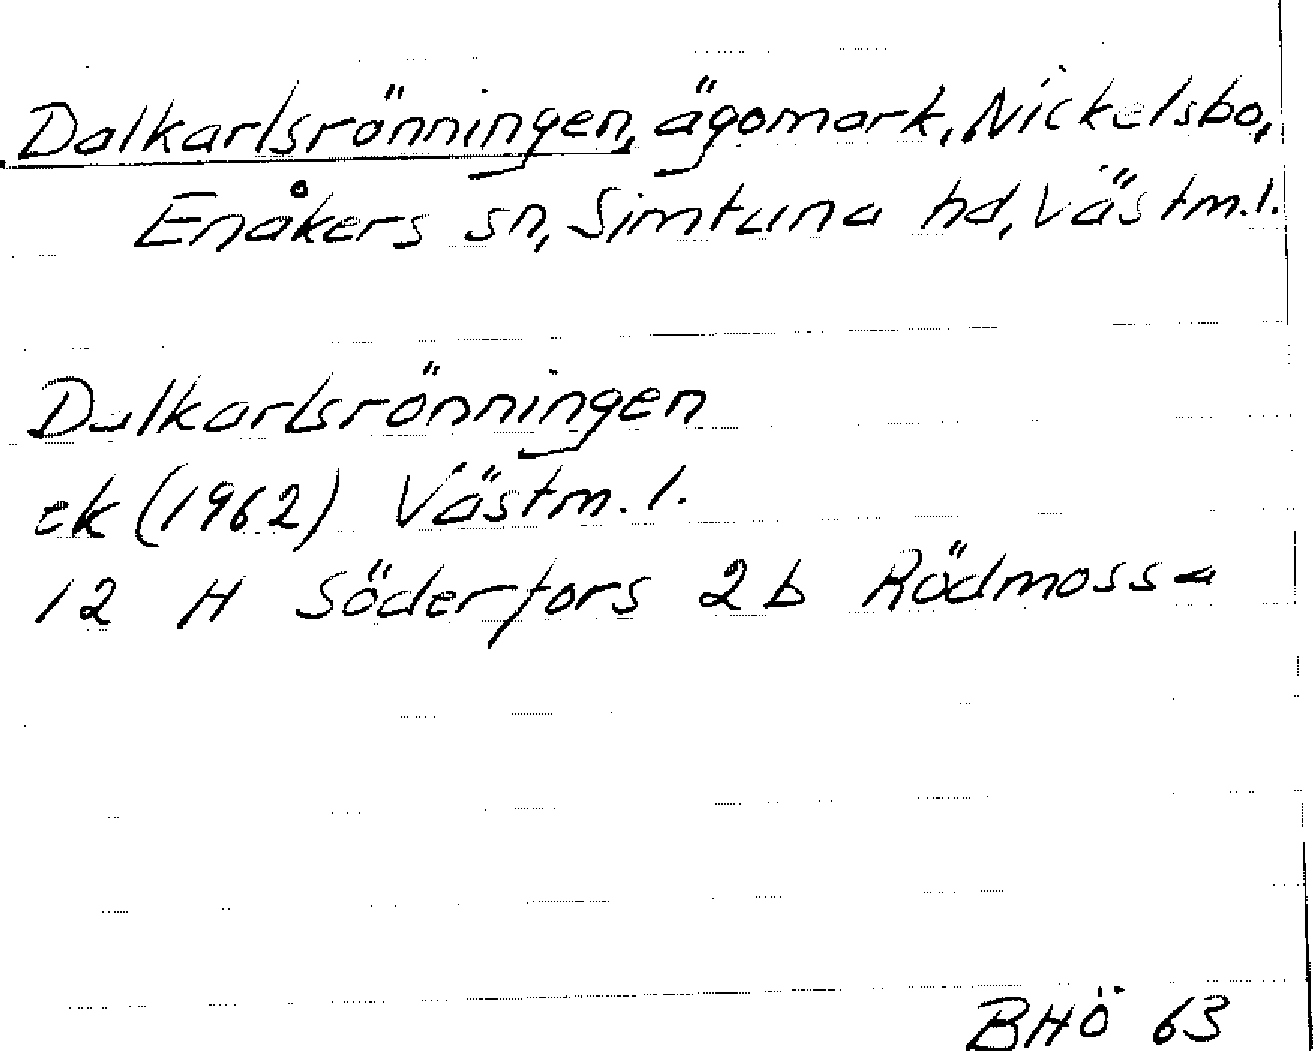 Dalkarlsrönningen, ägomark, Nickelsbo,
Enåkers sn, Simtuna hd, Västm. l.
Dalkarlsrönningen
ek (1962) Västm. l.
12 H Söderfors 2 b Rödmossa
BHÖ 63